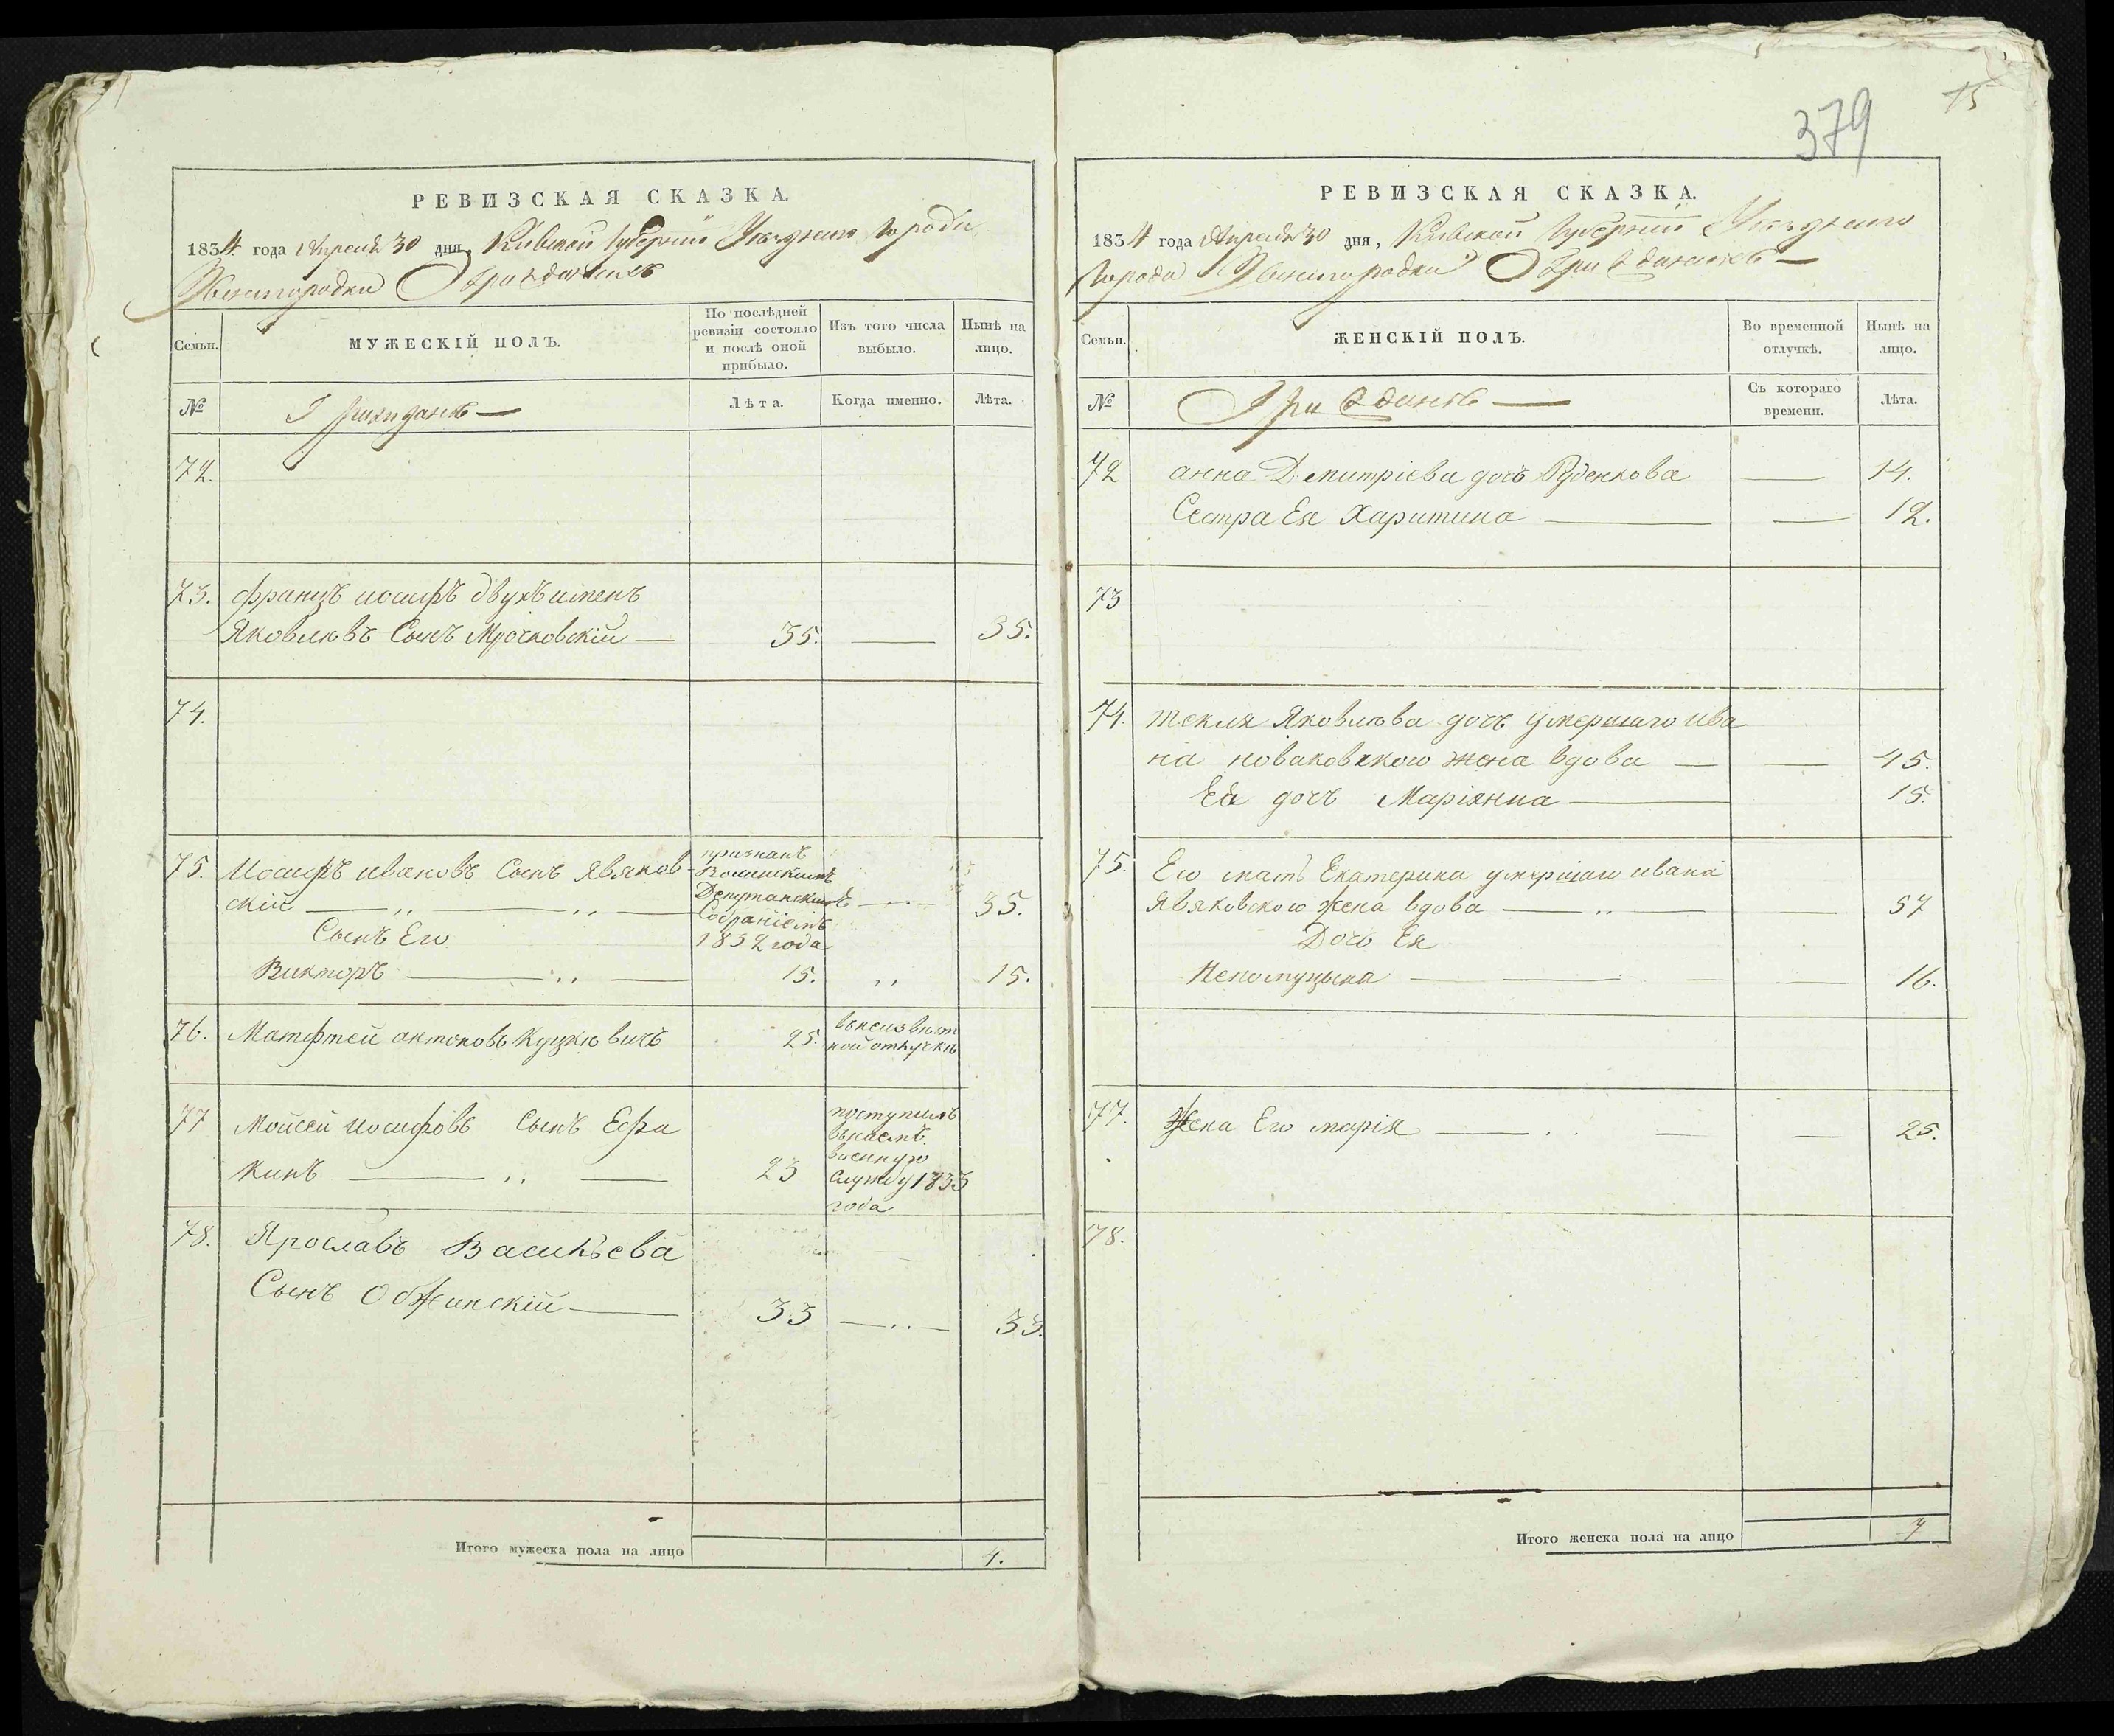 379
15
РЕВИЗСКАЯ СКАЗКА.
1834 года Апреля 30 дня, Киевской Губерніи Уезднаго Города
Звенигородки О Гражданахъ
Семьи.
МУЖЕСКІЙ ПОЛЪ.
По послѣдней ревизіи состояло и послѣ оной прибыло.
Изъ того числа выбыло.
Нынѣ на лицо.
№
Гражданъ —
Лѣта.
Когда именно.
Лѣта.
72.
73. францъ иосифъ двухъ именъ
Яковлевъ Сынъ Мрочковскій — 35. — 35.
74.
75. Иосифъ ивановъ Сынъ Явяков-
скій — „ — „ — 35.
признанъ
Волынскимъ
Депутанскимъ
Собраніемъ
1832 года
Сынъ Его
Викторъ — „ — 15. „ 15.
76. Матфтей антоновъ Куцкевичъ 25.
въ неизвѣст
ной отлучкѣ
77 Мойсей иосифовъ Сынъ Ефи
кинъ — „ — 23
поступилъ
внаемъ
военную
службу 1833
года
78. Ярославъ Васильева
Сынъ Обжинскій — 33 — „ — 33.
Итого мужеска пола на лицо 4.
РЕВИЗСКАЯ СКАЗКА.
1834 года Апреля 30 дня, Киевской Губерніи Уезднаго
Города Звенигородки О Гражданахъ —
Семьи.
ЖЕНСКІЙ ПОЛЪ.
Во временной отлучкѣ.
Нынѣ на лицо.
№
Гражданъ —
Съ котораго времени.
Лѣта.
72 анна Дмитріева дочь Руденкова — 14.
Сестра Ея Харитина — — 12.
73
74. текля Яковлева дочь умершаго ива
на новаковского жена вдова — — 45.
Ея дочь Маріянна — 15.
75. Его мать Екатерина умершаго ивана
Явяковского жена вдова — „ — — 57
Дочь Ея
Непомуцына — — — — 16.
77. Жена Его марія — „ — — 25.
78.
Итого женска пола на лицо 7